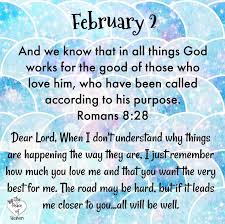 February 2
And we know that in all things God
works for the good of those who
love him, who have been called
according to his purpose.
Romans 8:28
Dear Lord, When I don't understand why things
are happening the way they are, I just remember
how much you love me and that you want the very
best for me. The road may be hard, but if it leads
me closer to you...all will be well.